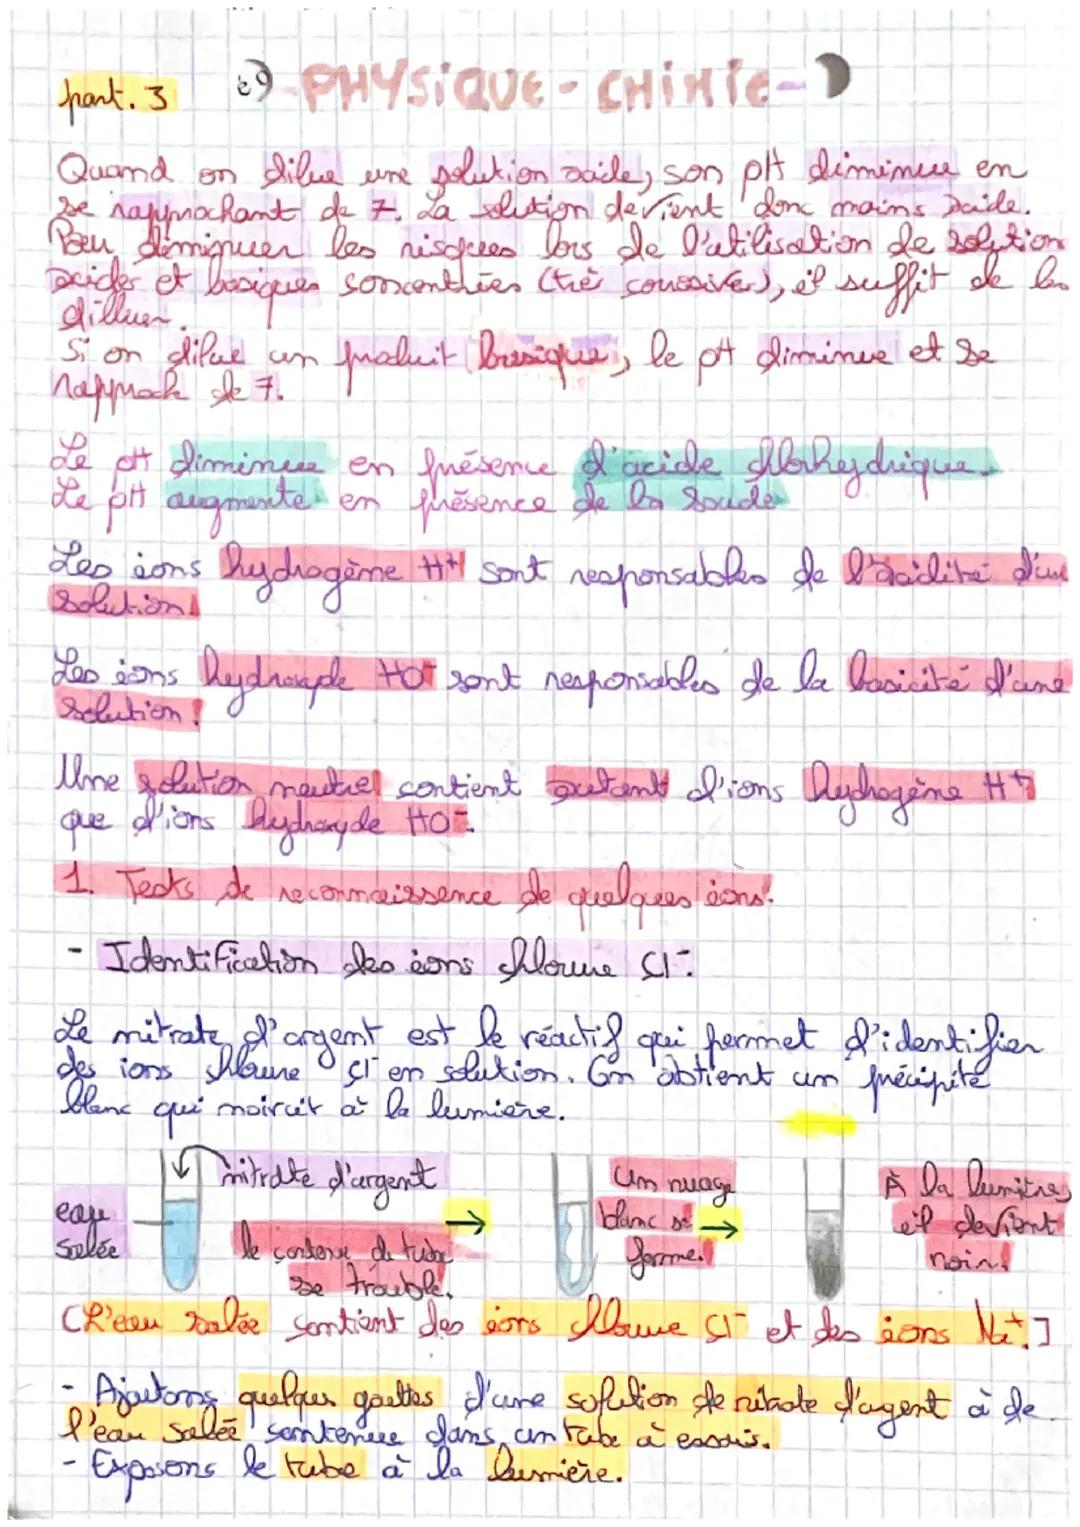 part. 3
PHYSIQUE - CHIMIE -
Quand on dilue une solution acide, son pH diminue en
se rapprochant de 7. La solution devient donc moins acide.
Pour diminuer les risques lors de l'utilisation de solution
acides et basiques concentrées (très corrosives), il suffit de les
dilluer.
Si on dilue un produit basique, le pH diminue et se
rapproch de 7.
Le pH diminue en présence d'acide chlorhydrique.
Le pH augmente en présence de la soude
Les ions hydrogène H+ sont responsables de l'acidité d'une
solution.
Les ions hydroxyde HO- sont responsables de la basicité d'une
solution.
Une solution neutre contient autant d'ions hydrogène H+
que d'ions hydroxyde HO-.
1. Tests de reconnaissence de quelques ions.
- Identification des ions chlorure Cl-.
Le nitrate d'argent est le réactif qui permet d'identifier
des ions chlorure Cl- en solution. On obtient un précipité
blanc qui noircit à la lumière.
nitrate d'argent
eau
salée
le contenu du tube
se trouble.
Un nuage
blanc se
forme.
À la lumière,
il devient
noir.
(L'eau salée contient des ions chlorure Cl- et des ions Na+.]
- Ajoutons quelques gouttes d'une solution de nitrate d'argent à de
l'eau salée contenue dans un tube à essais.
- Exposons le tube à la lumière.